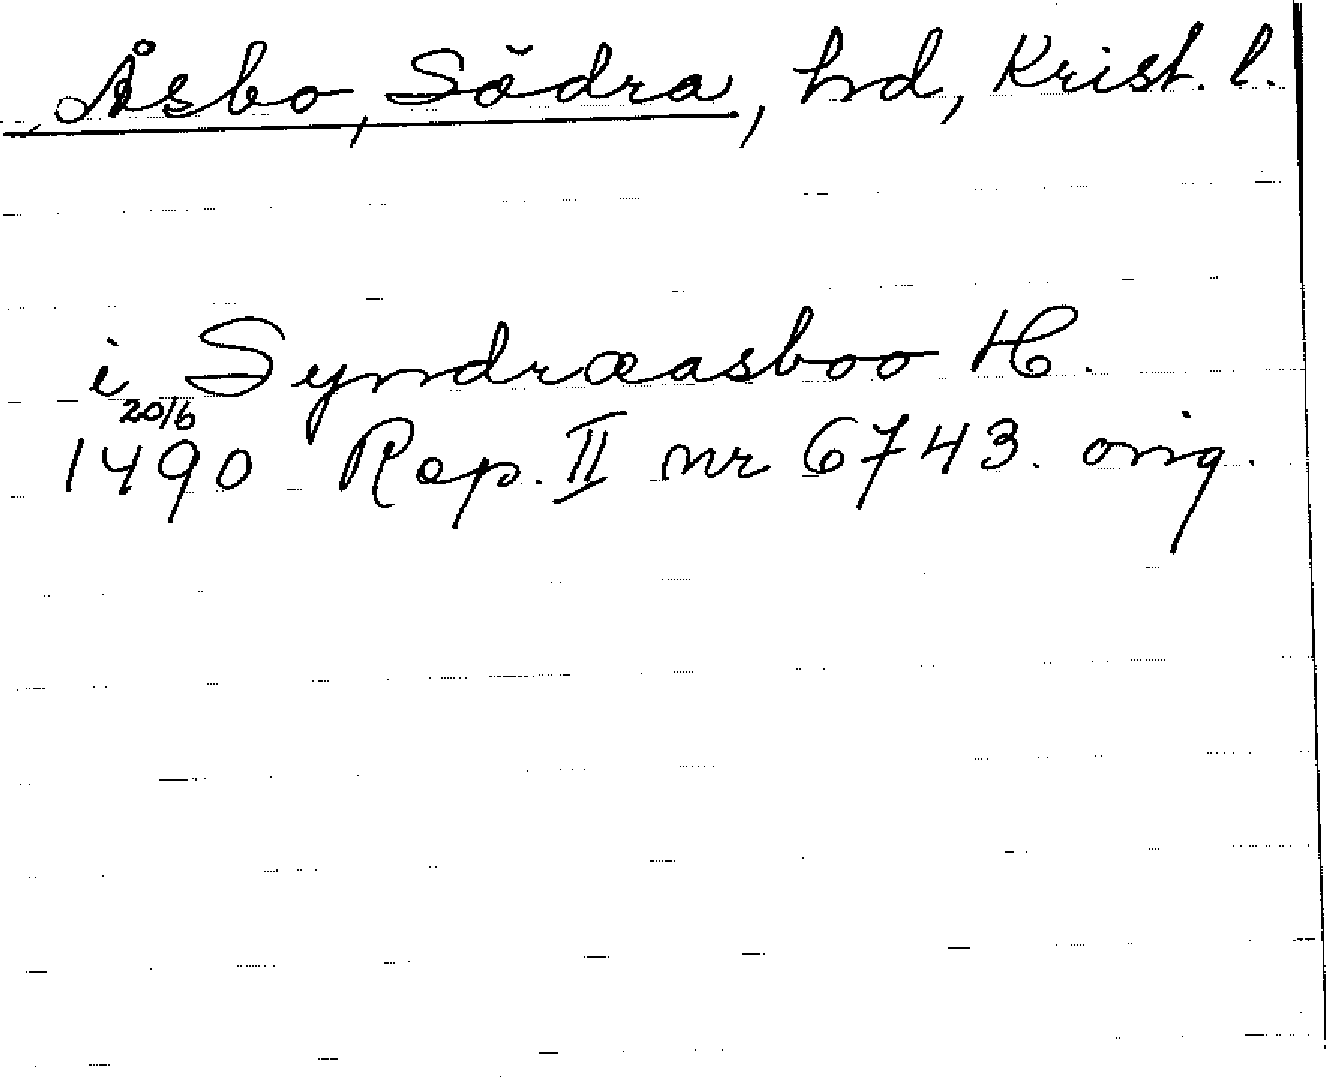 Åsbo, Södra, hd, Krist. l.
i Syndræasboo H.
20/6
1490 Rep. II nr 6743. orig.